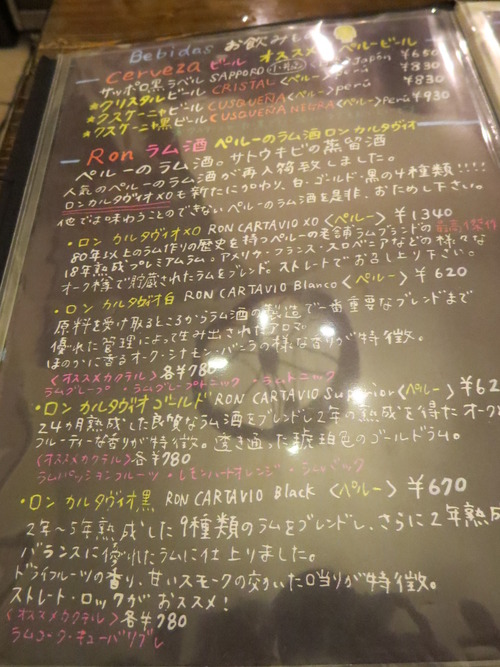 Bebidas お飲みし
Cerveza ビール オススメ ペルービール
サッポロ黒ラベル SAPPORO Japón ¥650
★クリスタルビール CRISTAL <ペルー> perú ¥830
★クスケーニャビール CUSQUEÑA <ペルー> perú ¥830
★クスケーニャ黒ビール CUSQUEÑA NEGRA <ペルー> Perú ¥930
Ron ラム酒 ペルーのラム酒 ロン カルタヴィオ
ペルーのラム酒。サトウキビの蒸留酒
人気のペルーのラム酒が再入荷致しました。
ロンカルタヴィオXOも新たに加わり、白・ゴールド・黒の4種類!!!!
他では味わうことのできないペルーのラム酒を是非、おためし下さい。
・ロン カルタヴィオXO RON CARTAVIO XO <ペルー> ¥1340
80年以上のラム作りの歴史を持つペルーの老舗ラムブランドの最高傑作
18年熟成プレミアムラム。アメリカ・フランス・スロベニアなどの様々な
オーク樽で貯蔵されたラムをブレンド。ストレートでお召し上り下さい。
・ロン カルタヴィオ白 RON CARTAVIO Blanco <ペルー> ¥620
原料を受け取るところからラム酒の製造で一番重要なブレンドまで
優れた管理によって生み出されたアロマ。
ほのかに香るオーク・シナモン・バニラの様な香りが特徴。
<オススメカクテル> 各¥780
ラムグレープ・ラムグレープトニック・ラムトニック
・ロン カルタヴィオゴールド RON CARTAVIO Superior <ペルー> ¥62
24か月熟成した良質なラム酒をブレンドし2年の熟成を得たオーク
フルーティーな香りが特徴。透き通った琥珀色のゴールドラム。
<オススメカクテル> 各¥780
ラムパッションフルーツ・レモンハートオレンジ・ラムバック
・ロン カルタヴィオ黒 RON CARTAVIO Black <ペルー> ¥670
2年〜5年熟成した9種類のラムをブレンドし、さらに2年熟成
バランスに優れたラムに仕上りました。
ドライフルーツの香り、甘いスモークの効いた口当りが特徴。
ストレート・ロックがおススメ!
<オススメカクテル> 各¥780
ラムコーク・キューバリブレ